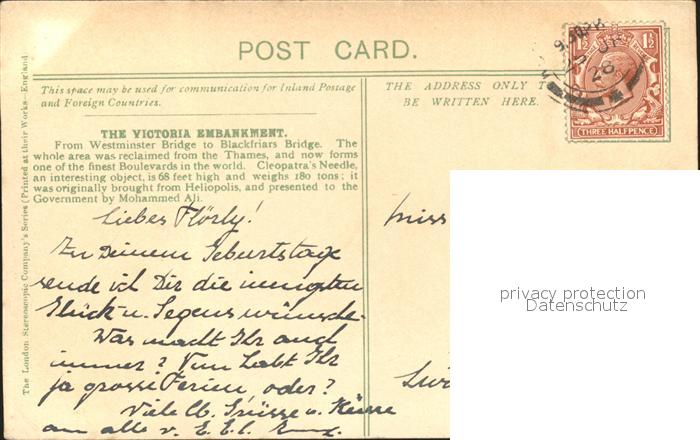 POST CARD.
This space may be used for communication for Inland Postage
and Foreign Countries.
THE ADDRESS ONLY TO
BE WRITTEN HERE.
THE VICTORIA EMBANKMENT.
From Westminster Bridge to Blackfriars Bridge. The
whole area was reclaimed from the Thames, and now forms
one of the finest Boulevards in the world. Cleopatra's Needle,
an interesting object, is 68 feet high and weighs 180 tons; it
was originally brought from Heliopolis, and presented to the
Government by Mohammed Ali.
Liebes Flörly!
Zu Deinem Geburtstage
sende ich Dir die innigsten
Glück u. Segenswünsche.
Was macht Ihr auch
immer? Nun habt Ihr
ja grosse Ferien, oder?
Viele lb. Grüsse u. Küsse
an alle v. E.
Miss
The London Stereoscopic Company's Series (Printed at their Works—England.
1½ 1½
THREE HALFPENCE
28
privacy protection
Datenschutz